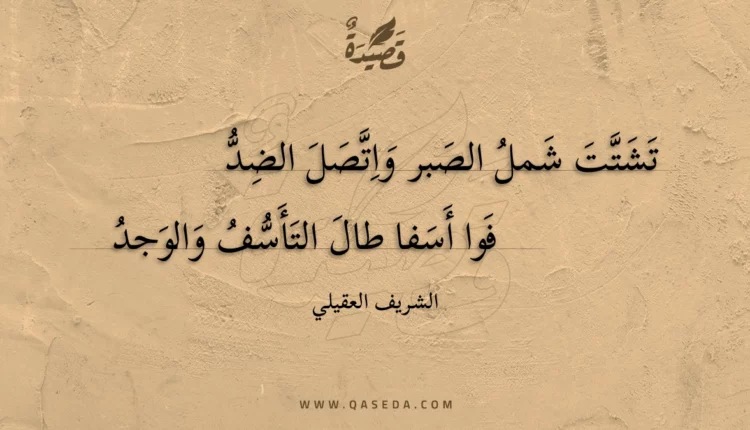 قَصِيْدَةٌ
تَشَتَّتَ شَملُ الصَبر وَاِتَّصَلَ الضِدُّ
فَوا أَسَفا طالَ التَأَسُّفُ وَالوَجدُ
الشريف العقيلي
WWW.QASEDA.COM